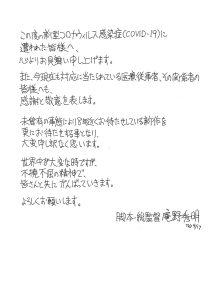 この度の新型コロナウィルス感染症(COVID-19)に
遭われた皆様へ、
心よりお見舞い申し上げます。
また、今現在も対応に当たられている医療従事者、その関係者の
皆様へも、
感謝と敬意を表します。
未曾有の事態により8度近くお待たせしている新作を
更にお待たせする事となり、
大変申し訳なく思います。
世界中が大変な時ですが、
不撓不屈の精神で、
皆さんと共にがんばっていきます。
よろしくお願いします。
脚本・総監督 庵野秀明